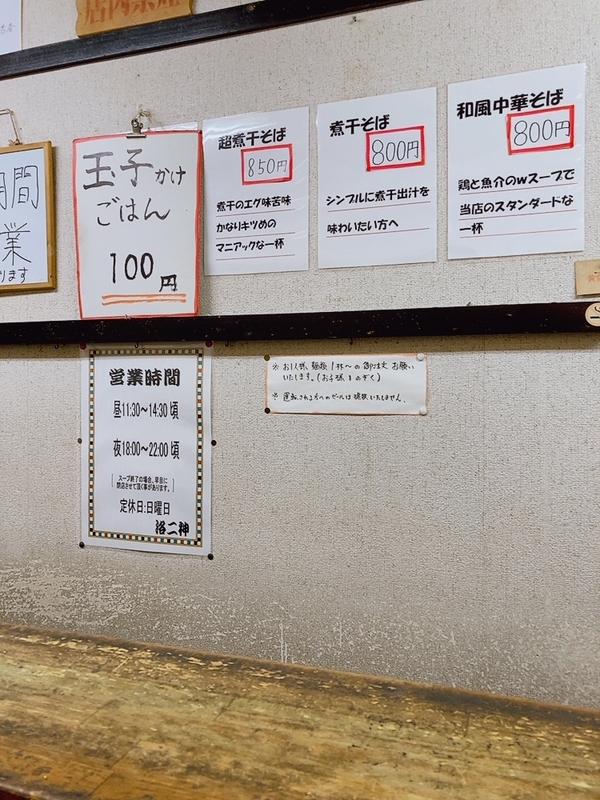 店内禁煙
間
業
ります
玉子かけ
ごはん
100円
超煮干そば
850円
煮干のエグ味苦味
かなりキツめの
マニアックな一杯
煮干そば
800円
シンプルに煮干出汁を
味わいたい方へ
和風中華そば
800円
鶏と魚介のwスープで
当店のスタンダードな
一杯
営業時間
昼11:30〜14:30頃
夜18:00〜22:00頃
スープ終了の場合、早目に
閉店させて頂く事があります。
定休日:日曜日
洛二神
※ お1人様、麺類1杯〜の御注文お願い
いたします。(お子様はのぞく)
※ 運転される方へのビールは提供いたしません。